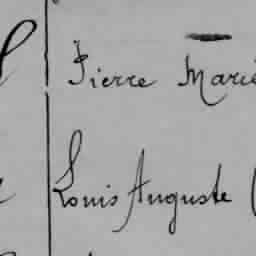 Pierre Marie
Louis Auguste (